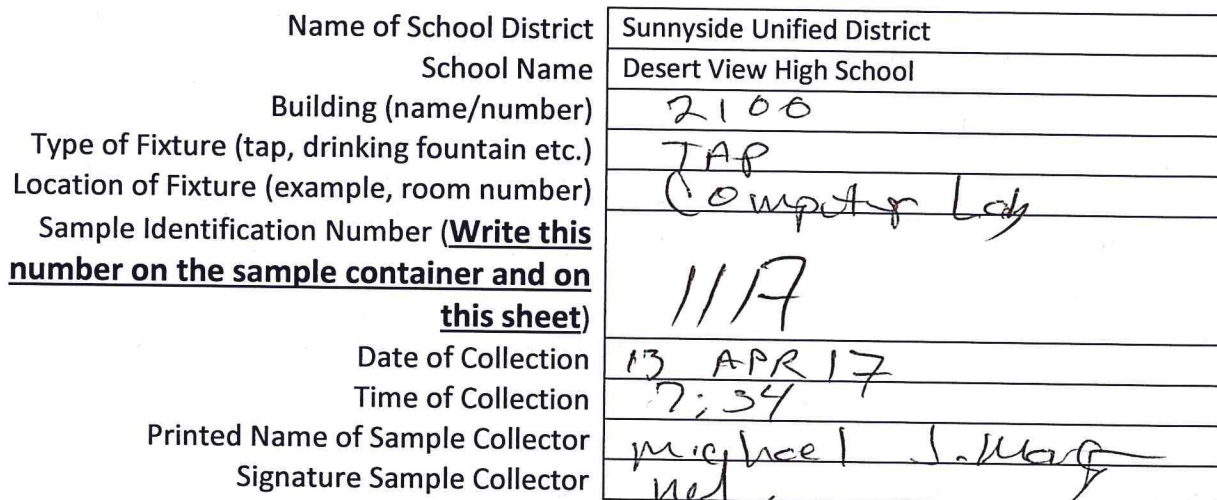 Name of School District Sunnyside Unified District
School Name Desert View High School
Building (name/number) 2100
Type of Fixture (tap, drinking fountain etc.) TAP
Location of Fixture (example, room number) Computer Lab
Sample Identification Number (Write this
number on the sample container and on
this sheet) 11A
Date of Collection 13 APR 17
Time of Collection 7:34
Printed Name of Sample Collector Michael J.
Signature Sample Collector